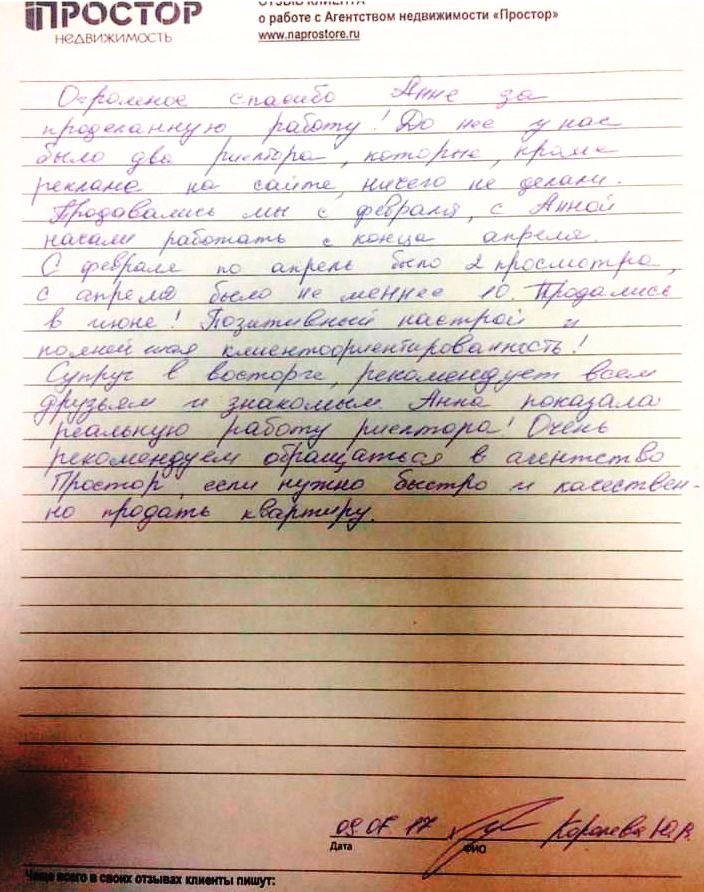 ПРОСТОР
НЕДВИЖИМОСТЬ
ОТЗЫВ КЛИЕНТА
о работе с Агентством недвижимости «Простор»
www.naprostore.ru
Огромное спасибо Анне за
проделанную работу! До нее у нас
было два риелтора, которые, кроме
реклама на сайте, ничего не делали.
Продавались мы с февраля, с Анной
начали работать с конца апреля.
С февраля по апрель было 2 просмотра,
с апреля было не меннее 10. Продались
в июне! Позитивный настрой и
полнейшая клиентоориентированность!
Супруг в восторге, рекомендует всем
друзьям и знакомым. Анна показала
реальную работу риелтора! Очень
рекомендуем обращаться в агентство
Простор, если нужно быстро и качествен-
но продать квартиру.
09.07.17 Королева Ю.В.
Дата ФИО
Чаще всего в своих отзывах клиенты пишут: